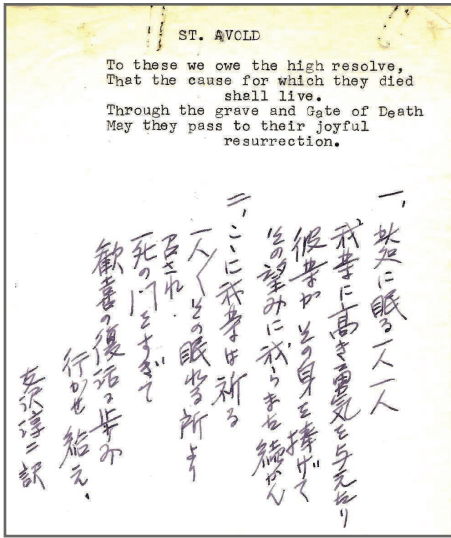 ST. AVOLD
To these we owe the high resolve,
That the cause for which they died
shall live.
Through the grave and Gate of Death
May they pass to their joyful
resurrection.
一、此処に眠る一人一人
我等に高き勇気を与えたり
彼等がその身を捧げて
その望みに我らまた続かん
二、こゝに我等は祈る
一人〱その眠れる所より
召され
死の門をすぎて
歓喜の復活へ歩み
行かせ給え、
淳二訳